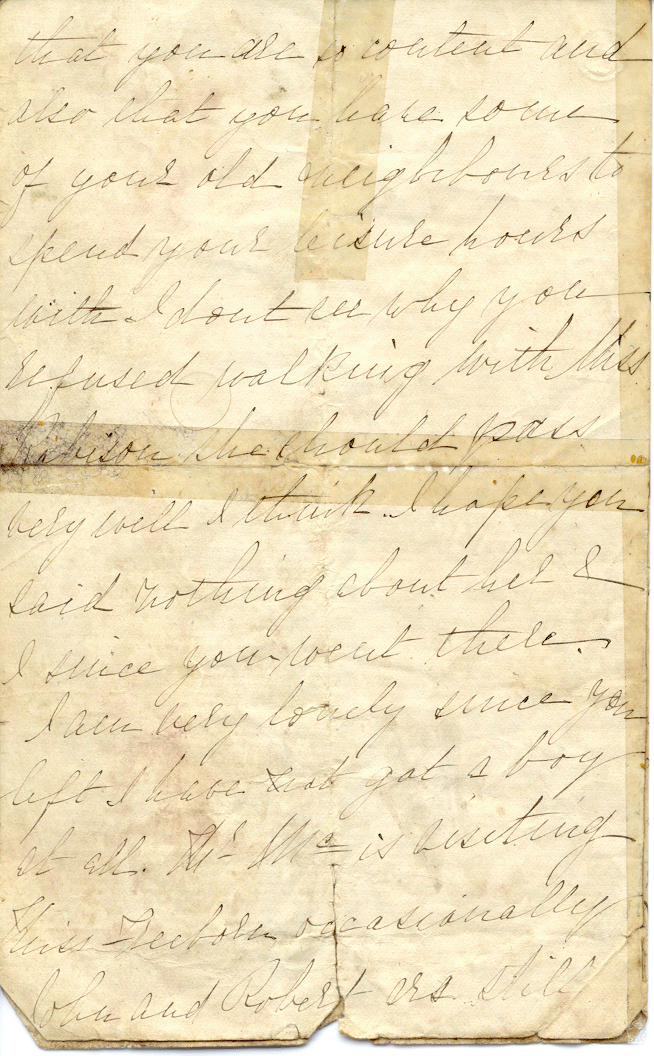 that you are so content and
also that you have some
of your old neighbours to
spend your leisure hours
with I dont see why you
refused walking with Miss
Robison she should pass
very well I think. I hope you
said nothing about her &
I since you went there.
I am very lonely since you
left I have not got a boy
at all. Mr Mc is visiting
Miss Freeborn occasionally
John and Robert are still